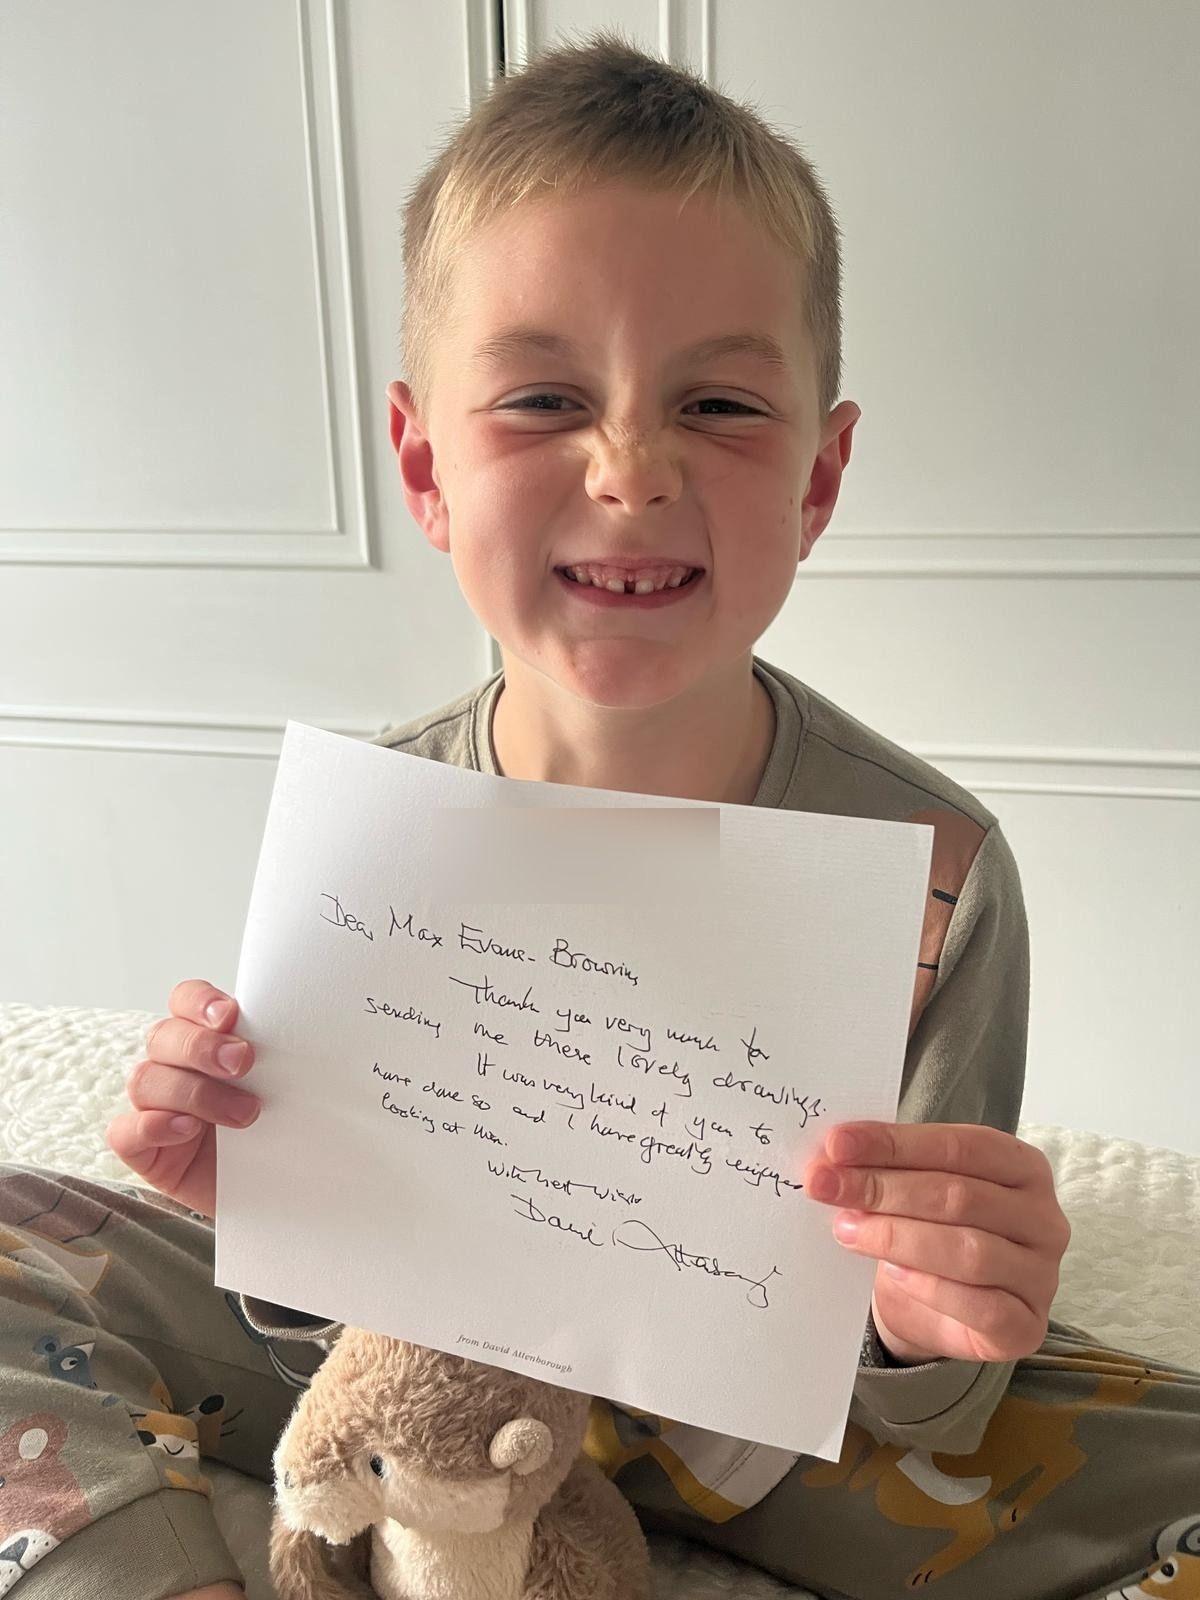 Dear Max Evans-Browning
Thank you very much for
sending me these lovely drawings.
It was very kind of you to
have done so and I have greatly enjoyed
looking at them.
With best wishes
David Attenborough
from David Attenborough